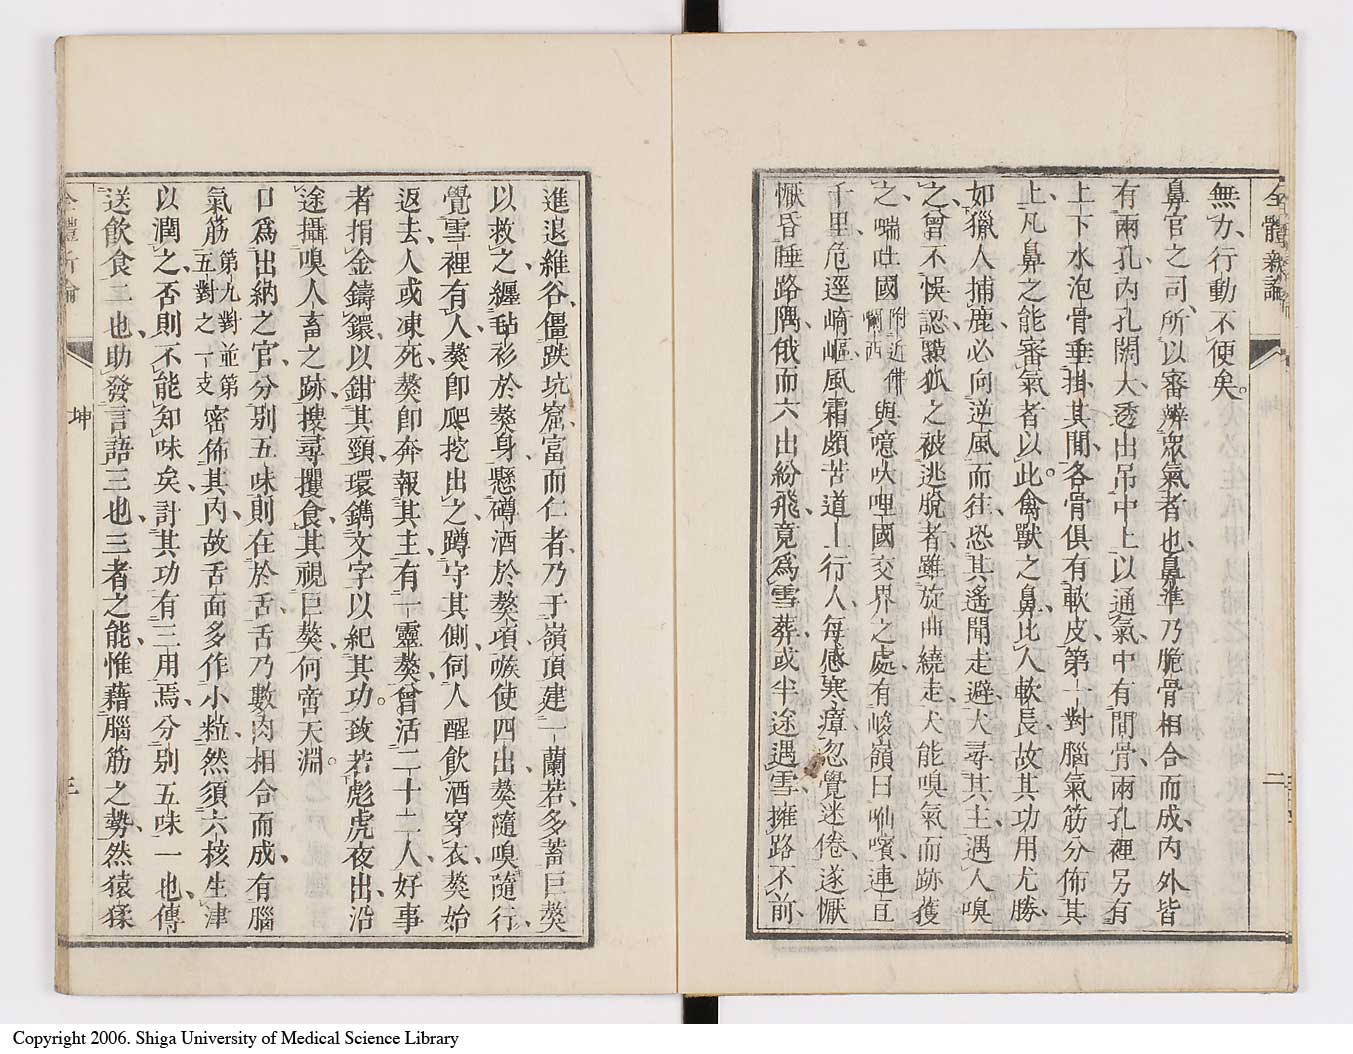 全體新論
二
無力、行動不便矣。
鼻官之司、所以審辨衆氣者也、鼻準乃脆骨相合而成、內外皆
有兩孔、內孔闊大、透出吊中上、以通氣、中有間骨、兩孔裡另有
上下水泡骨垂掛其間、各骨俱有軟皮、第一對腦氣筋分佈其
上、凡鼻之能審氣者以此。禽獸之鼻、比人軟長、故其功用尤勝、
如獵人捕鹿、必向逆風而往、恐其遙聞走避、犬尋其主、遇人嗅
之、曾不悞認、黠狐之被逃脫者、雖旋曲繞走、犬能嗅氣而跡獲
之、喘吐國附近佛囒西與噫吠哩國交界之處、有峻嶺曰喢嚬、連亘
千里、危逕崎嶇、風霜頗苦、道上行人、每感寒瘴、忽覺迷倦、遂懨
懨昏睡路隅、俄而六出紛飛、竟爲雪葬、或半途遇雪、擁路不前、
進退維谷、僵跌坑窟、富而仁者、乃于嶺頂建一蘭若、多蓄巨獒
以救之、纏毡衫於獒身、懸磚酒於獒項、嗾使四出、獒隨嗅隨行、
覺雪裡有人、獒卽爬挖出之、蹲守其側、伺人醒飲酒穿衣、獒始
返去、人或凍死、獒卽奔報其主、有一靈獒、曾活二十二人、好事
者捐金鑄鐶、以鉗其頸、環鐫文字以紀其功。致若彪虎夜出、沿
途攝嗅人畜之跡、搜尋攫食、其視巨獒、何啻天淵。
口爲出納之官、分别五味、則在於舌、舌乃數肉相合而成、有腦
氣筋第九對並第五對之一支密佈其內、故舌面多作小粒、然須六核生津
以潤之、否則不能知味矣、計其功有三用焉、分别五味一也、傳
送飲食二也、助發言語三也、三者之能、惟藉腦筋之勢、然猿猱
全體新論
坤
三